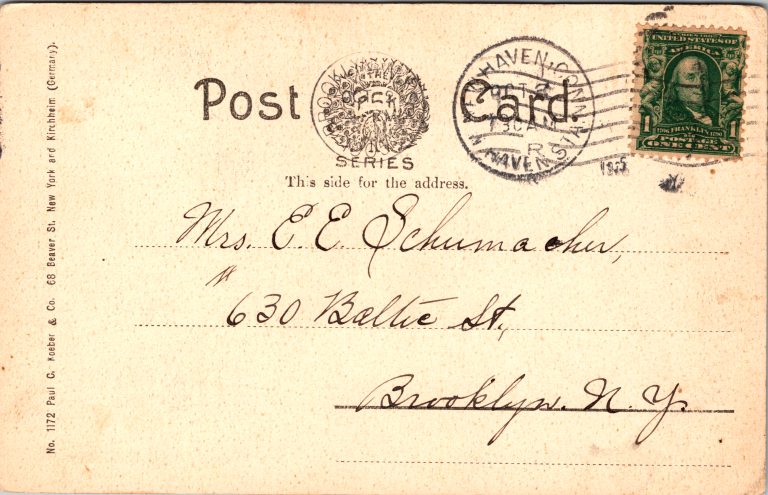 Post Card.
SERIES
This side for the address.
NEW HAVEN. CONN.
OCT 2
R
NEW HAVEN
SERIES 1902
UNITED STATES OF
AMERICA
1 1706 FRANKLIN 1790 1
POSTAGE
ONE CENT
Mrs. E. E. Schumacher,
# 630 Baltic St.,
Brooklyn. N. Y.
No. 1172 Paul C. Koeber & Co. 68 Beaver St. New York and Kirchheim (Germany).